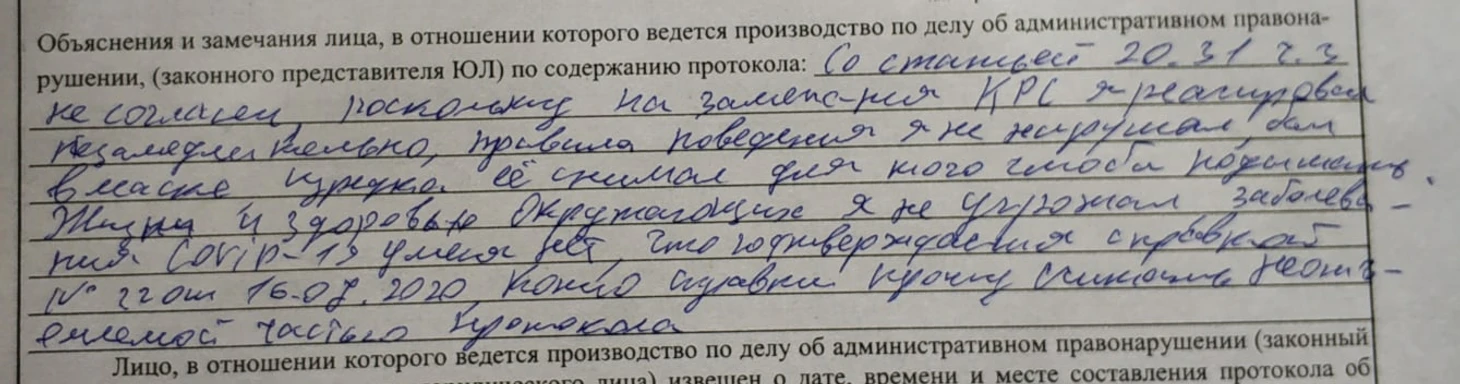 Объяснения и замечания лица, в отношении которого ведется производство по делу об административном правона-
рушении, (законного представителя ЮЛ) по содержанию протокола: Со статьей 20.31 ч.3
не согласен, поскольку на замечания КРС я реагировал
незамедлительно, правила поведения я не нарушал, был
в маске изредка её снимал для того чтобы подышать.
Жизни и здоровью окружающих я не угрожал заболева-
ния Covid-19 у меня нет, что подтверждается справкой
№ 22 от 16.07.2020, копию справки прошу считать неотъ-
емлемой частью протокола
Лицо, в отношении которого ведется производство по делу об административном правонарушении (законный
лица) извещен о дате, времени и месте составления протокола об